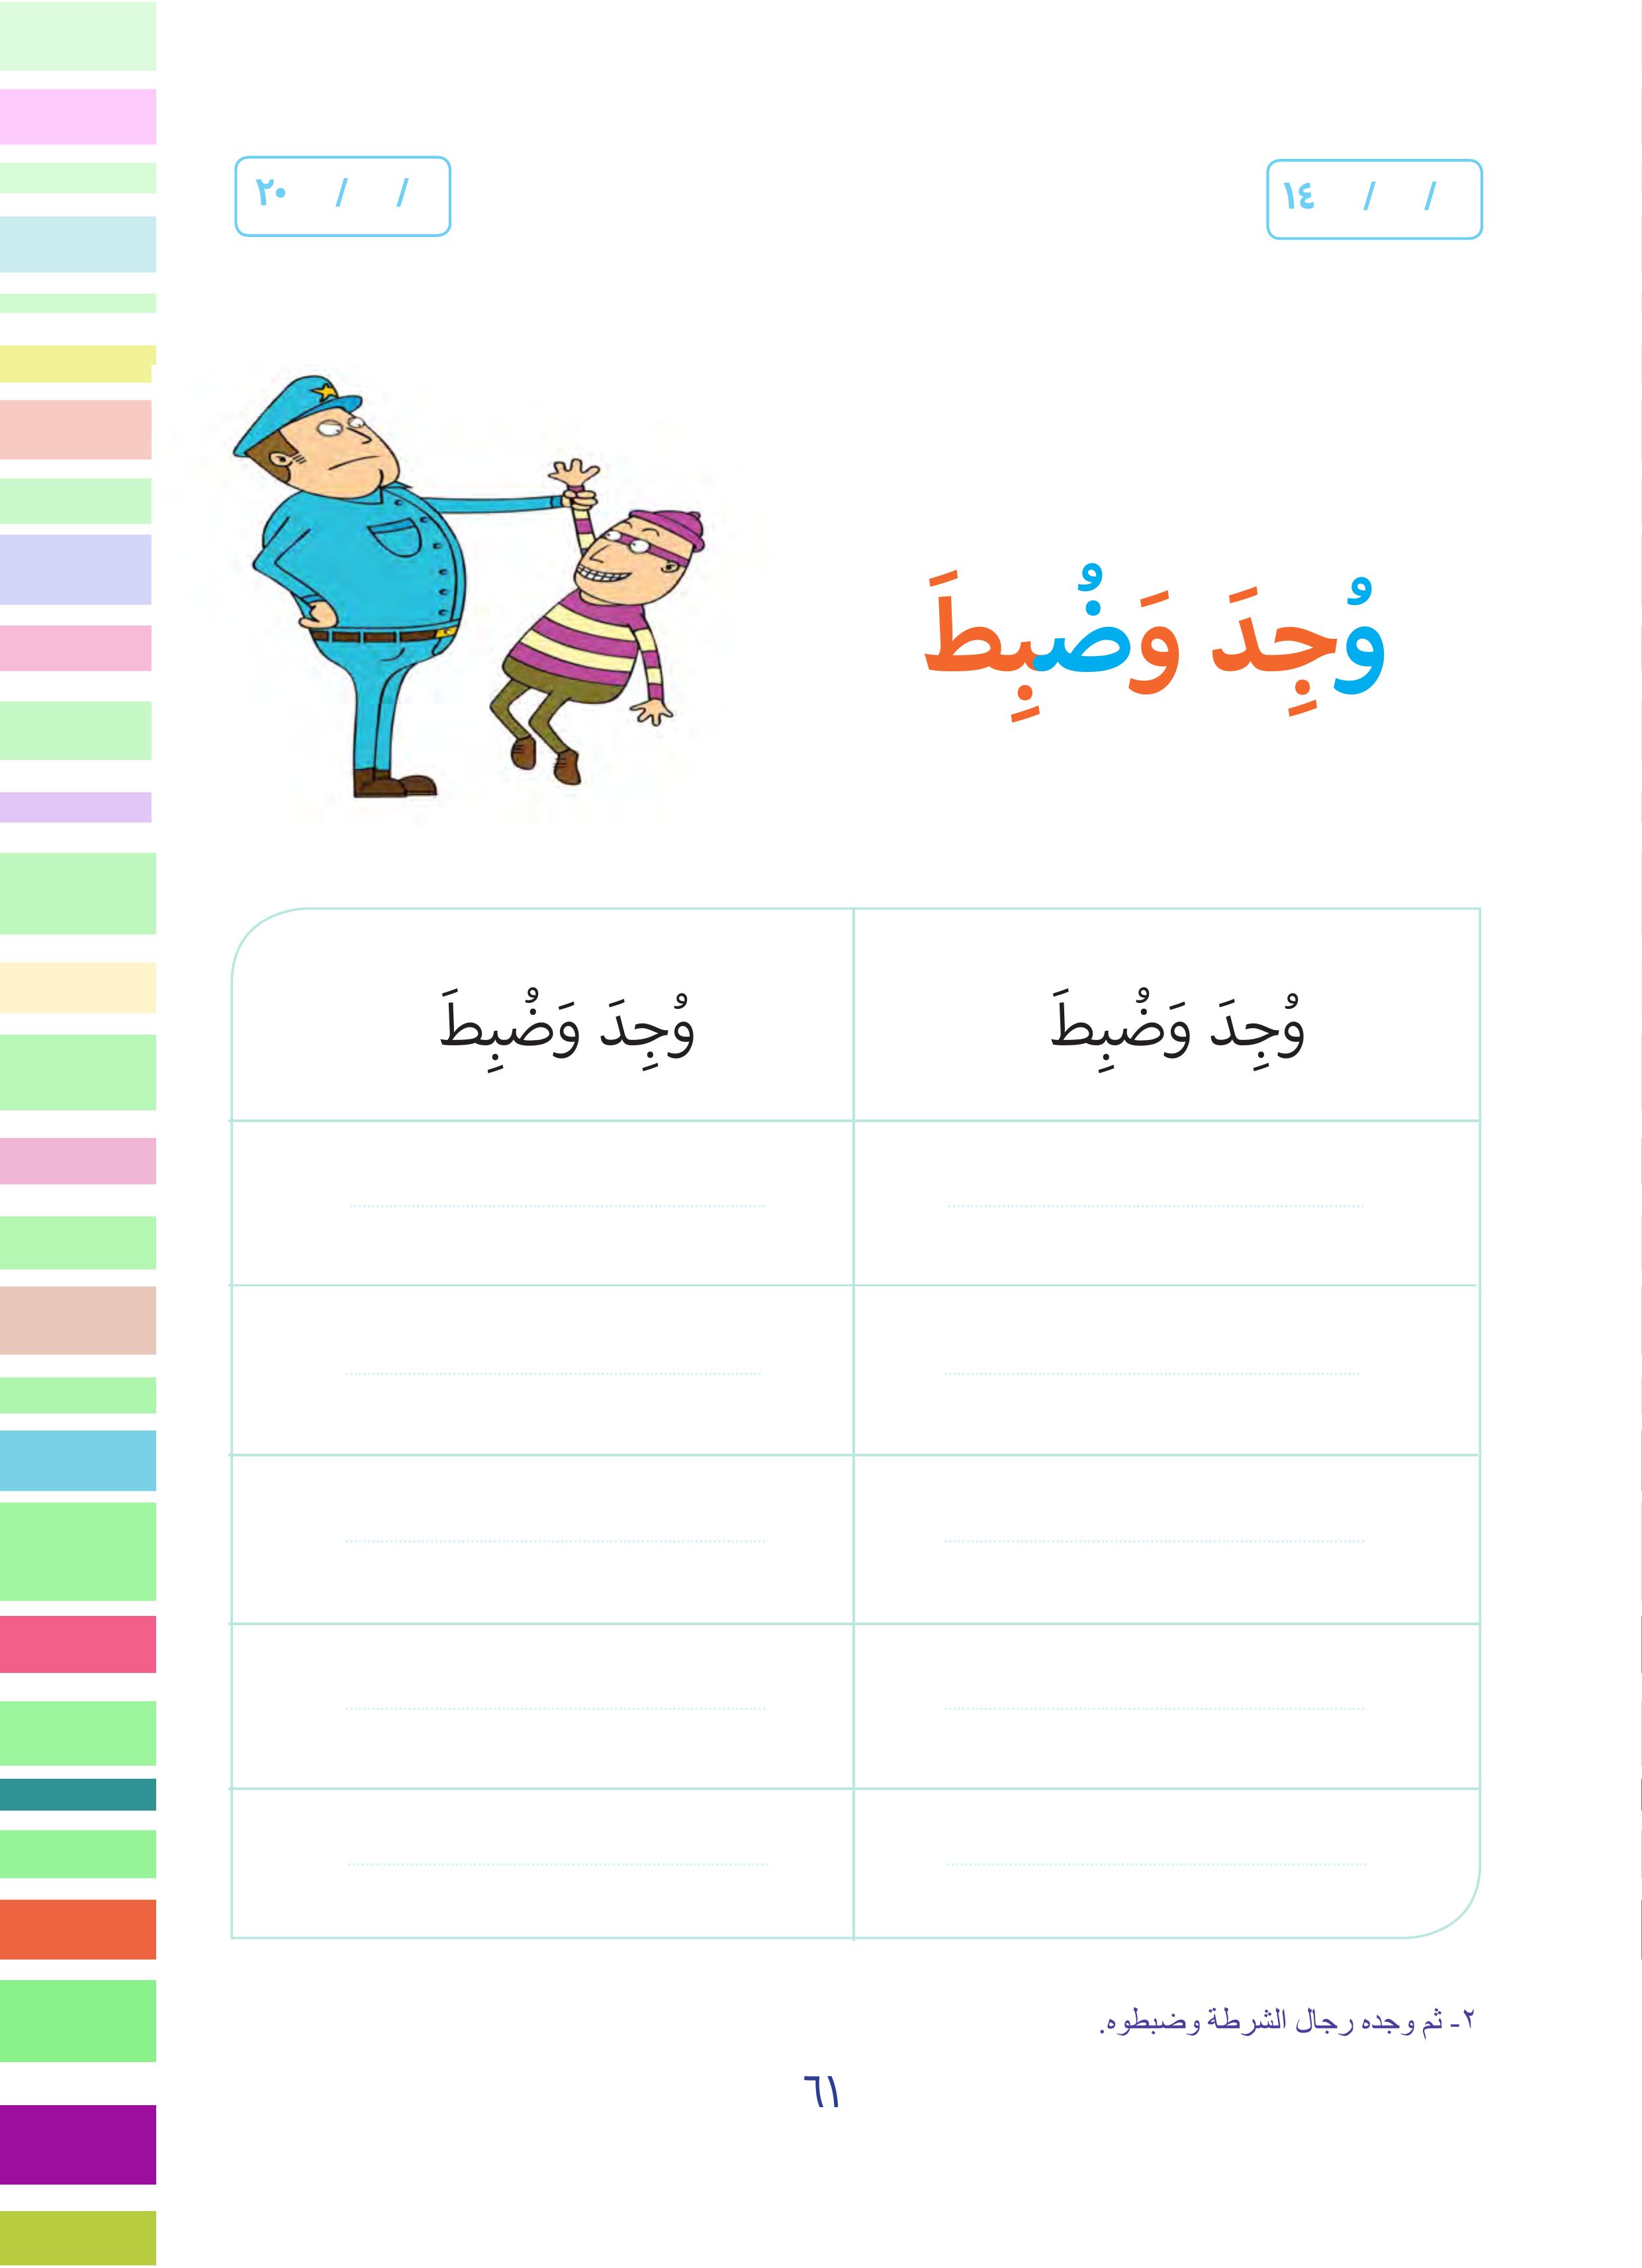 ١٤ / /
٢٠ / /
وُجِدَ وَضُبِطَ
وُجِدَ وَضُبِطَ
وُجِدَ وَضُبِطَ
٢- ثم وجده رجال الشرطة وضبطوه.
٦١